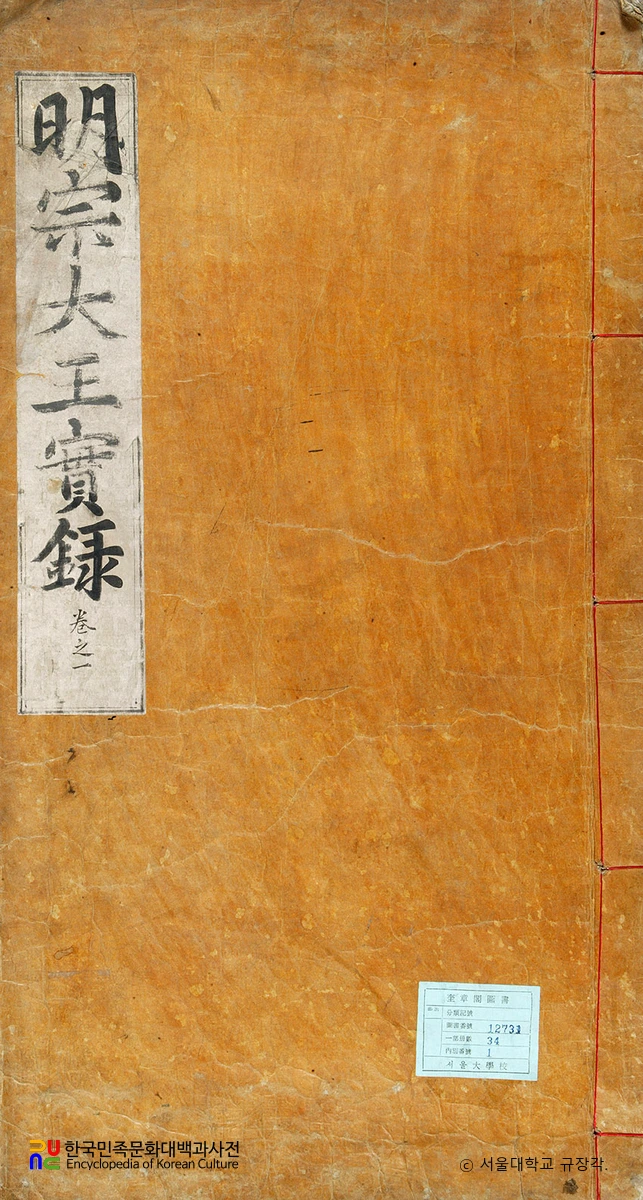 明宗大王實錄
卷之一
奎章閣圖書
分類記號
圖書番號 12731
一部冊數 34
內冊番號 1
서울大學校
한국민족문화대백과사전
Encyclopedia of Korean Culture
© 서울대학교 규장각.